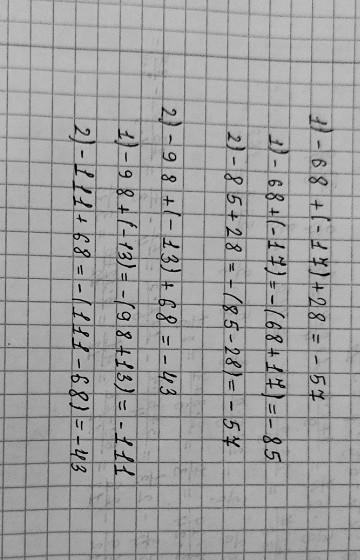 1) -68 + (-17) + 28 = -57
1) -68 + (-17) = -(68 + 17) = -85
2) -85 + 28 = -(85 - 28) = -57
2) -98 + (-13) + 68 = -43
1) -98 + (-13) = -(98 + 13) = -111
2) -111 + 68 = -(111 - 68) = -43